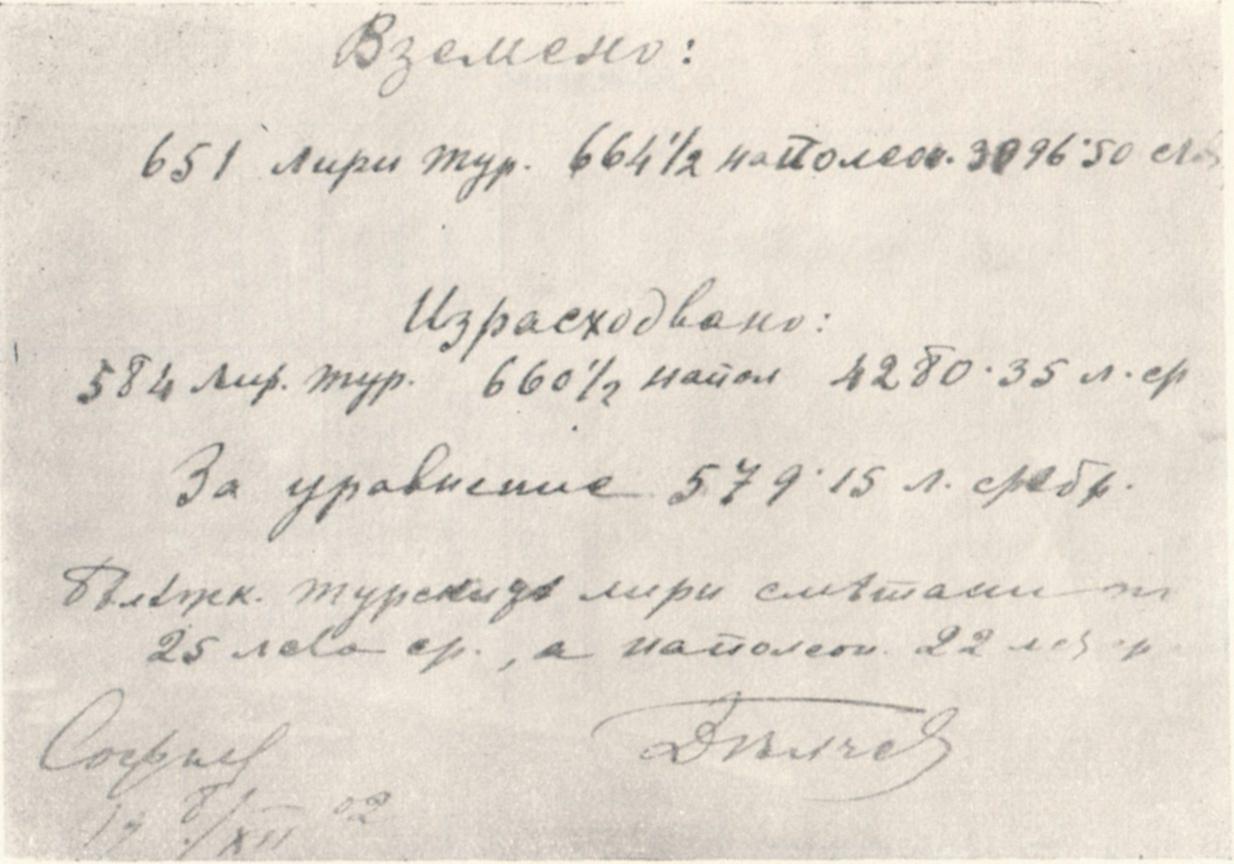 Вземено:
651 лири тур. 664 1/2 наполеон. 3096·50
Израсходвано:
584 лир. тур. 660 1/2 напол 4280·35 л. ср
За уравнение 579·15 л. сребр.
Бѣлѣжк. турскитѣ лири смѣтани по
25 лева ср., а наполеон. 22 лев ср
София Дѣлчев
19 8/XII 02